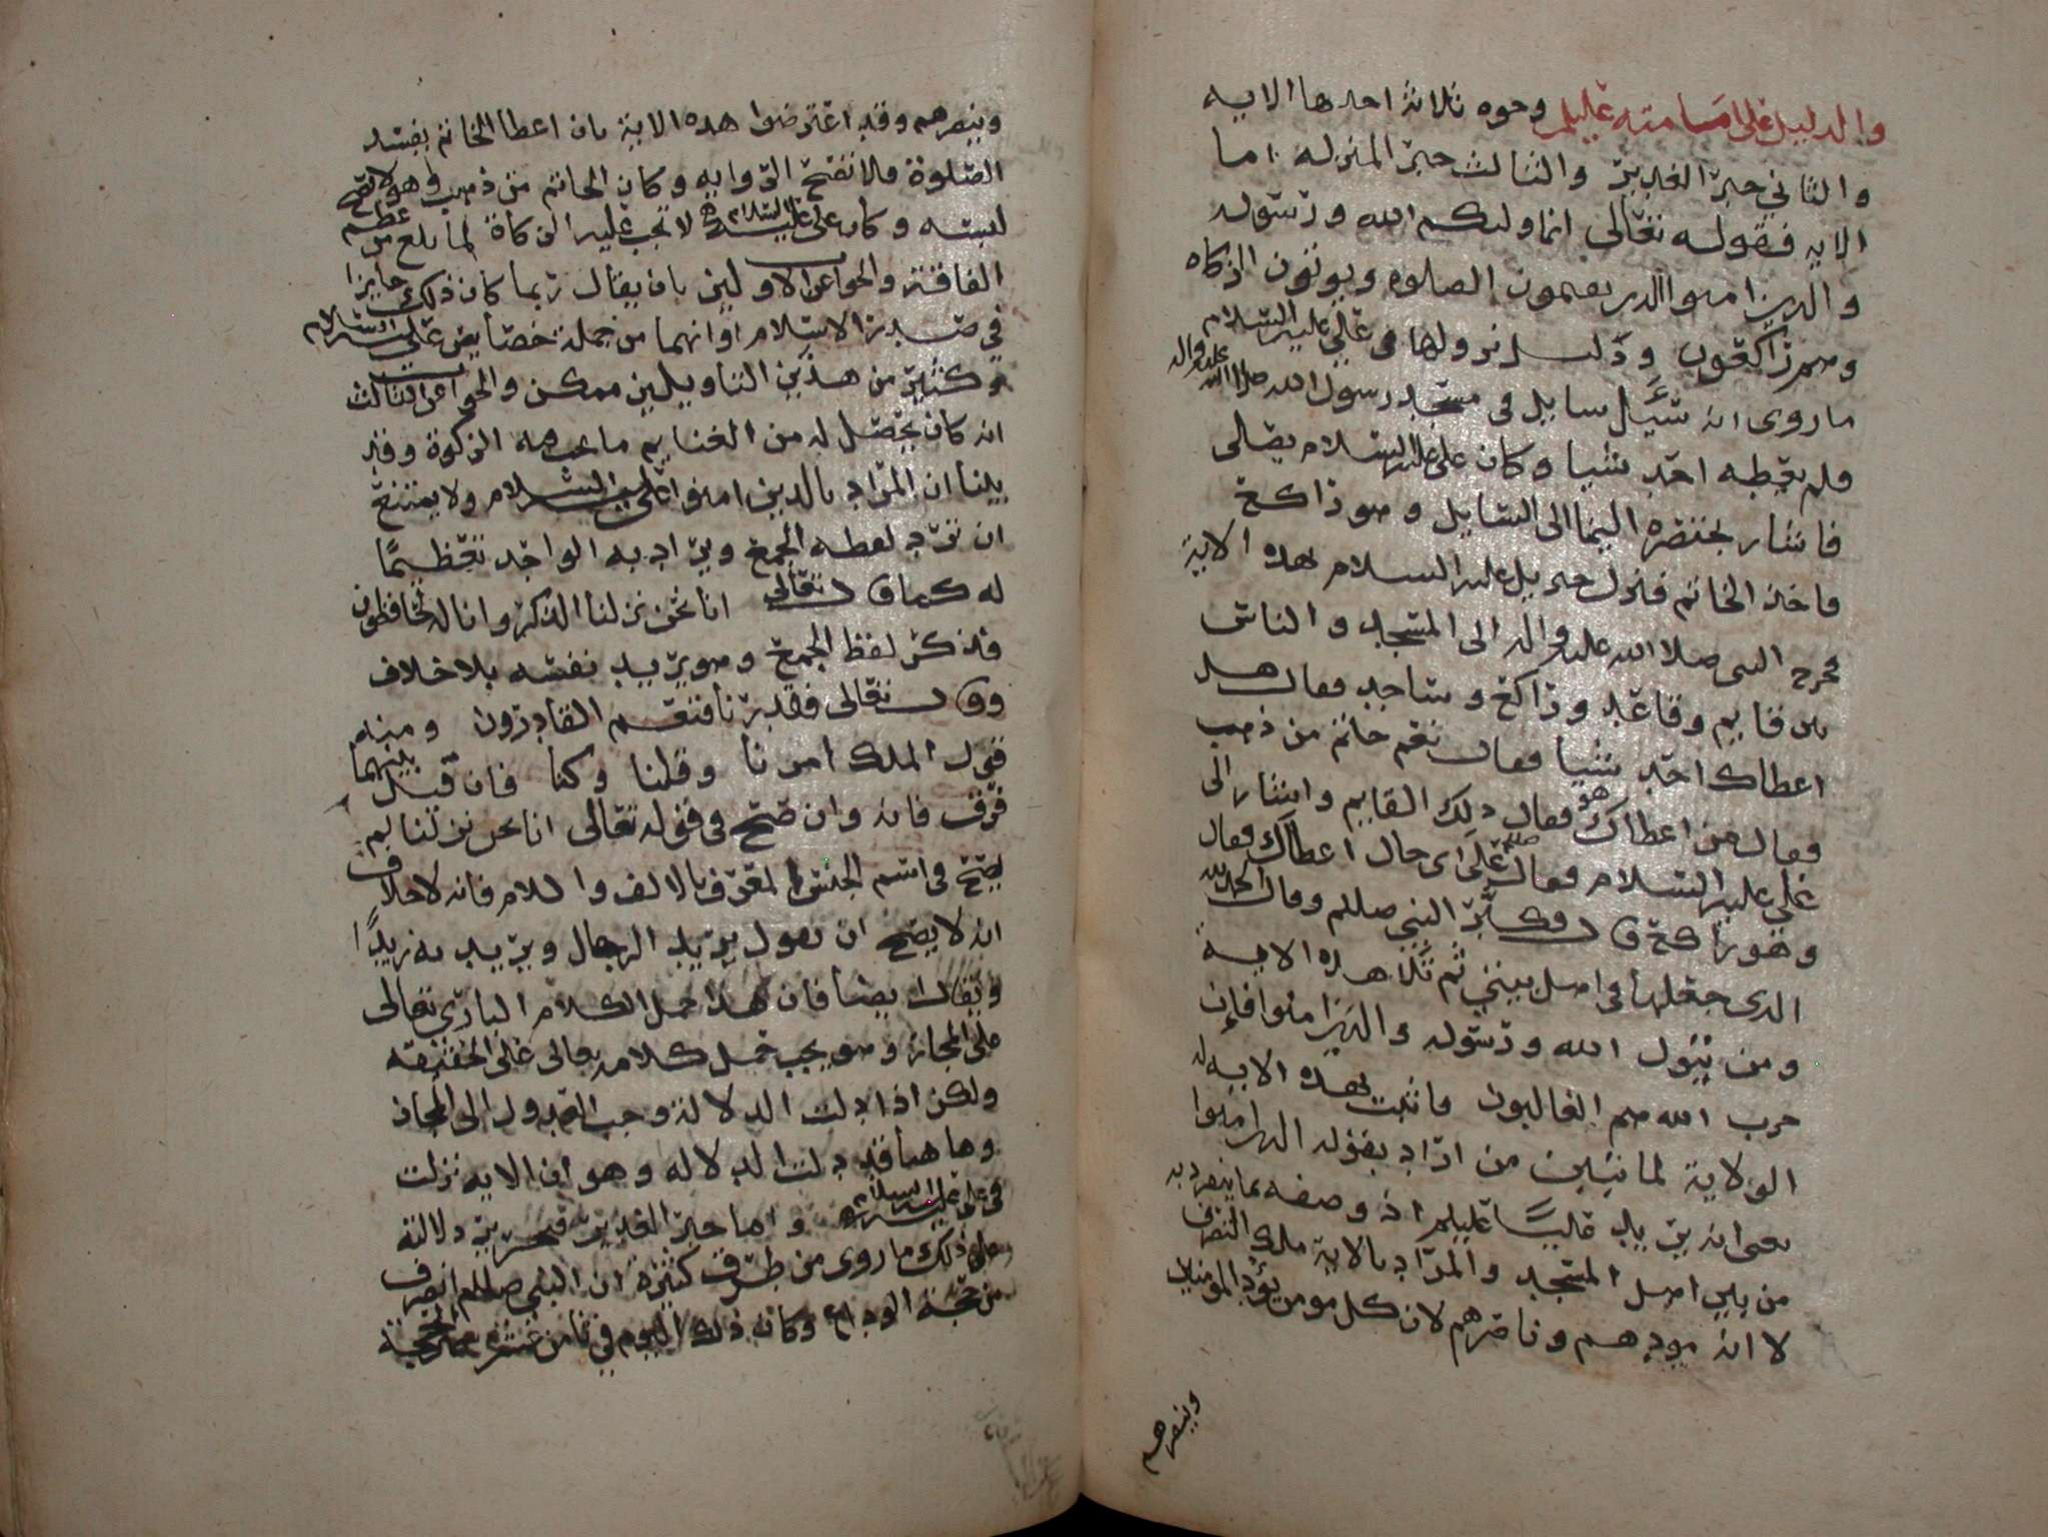 والدليل على امامته عليلم وجوه ثلاثة احدها الايه
والثاني خبر الغدير والثالث خبر المنزله اما
الايه فقوله تعالى انما وليكم الله ورسوله
والذين امنوا الذين يقيمون الصلوه ويوتون الزكاه
وهم راكعون ودليل نزولها في علي عليه السلام
ما روى انه سئل سايل في مسجد رسول الله صلى الله عليه واله
فلم يعطه احد شيا وكان علي عليه السلام يصلى
فاشار بخنصره اليمنا الى السايل وهو راكع
فاخذ الخاتم فنزل جبريل عليه السلام بهذه الاية
فخرج النبي صلا الله عليه واله الى المسجد والناس
بين قايم وقاعد وراكع وساجد فقال هل
اعطاك احد شيا فقال نعم خاتم من ذهب
فقال من اعطاك هو فقال ذلك القايم واشار الى
علي عليه السلام فقال صللم على اى حال اعطاك فقال
وهو راكع قال فكبر النبي صللم وقال الحمد لله
الذي جعلها في اهل بيتي ثم تلا هذه الايه
ومن يتول الله ورسوله والذين امنوا فإن
حزب الله هم الغالبون فاثبت بهذه الايه له
الولاية لما تبين من اراد بقوله الذين امنوا
يعني انه يريد عليًا عليلم اذ وصفه بما ينفرد به
من بين اهل المسجد والمراد بالاية ملك التصرف
لا انه يودهم وناصرهم لان كل مومن يود المومنين
وينصرهم
وينصرهم وقد اعترضوا هذه الاية بان اعطا الخاتم يفسد
الصلوة فلا تصح الروايه وكان الخاتم من ذهب وهو لا يصح
لبسه وكان علي عليه السلام لا تجب عليه الزكاة لما بلغ من عظم
الفاقة والجواب عن الاولين بان يقال ربما كان ذلك جايزا
في صدر الاسلام او انهما من جملة خصايص علي عليه السلام
وكثير من هذين التاويلين ممكن والجواب عن الثالث
انه كان يحصل له من الغنايم ما تجب فيه الزكوة وقد
بينا ان المراد بالذين امنوا علي عليه السلام ولا يمتنع
ان ترد لفظه الجمع ويراد به الواحد تعظيمًا
له كما قال تعالى انا نحن نزلنا الذكر وانا له لحافظون
فذكر لفظ الجمع وهو يريد نفسه بلا خلاف
وقال تعالى فقدرنا فنعم القادرون ومنه
قول الملك امرنا وقلنا وكنا فان قيل بينهما
فرق فانه وان صح في قوله تعالى انا نحن نزلنا لم
يصح في اسم الجنس المعرف بالالف واللام فانه لا خلاف
انه لا يصح ان تقول يريد الرجال ويريد به زيدًا
ويقال ايضا فان هذا حمل الكلام الباري تعالى
على المجاز وهو يجب حمل كلامه تعالى على الحقيقه
ولكن اذا دلت الدلالة وجب العدول الى المجاز
وها هنا قد دلت الدلاله وهو أن الايه نزلت
في علي عليه السلام واما خبر الغدير فتحرير دلالته
على ذلك ما روى من طرق كثيرة ان النبي صللم انصرف
من حجة الوداع وكان ذلك اليوم في ثامن عشر من ذي الحجة